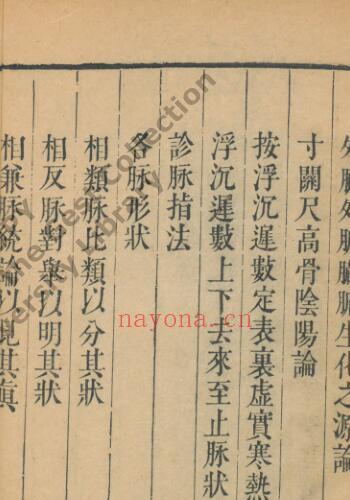 生化之源論
寸關尺高骨陰陽論
按浮沉遲數定表裏虛實寒熱
浮沉遲數上下去來至止脉狀
診脉指法
各脉形狀
相類脉比類以分其狀
相反脉對舉以明其狀
相兼脉統論以見其眞
Collection
Library
nayona.cn